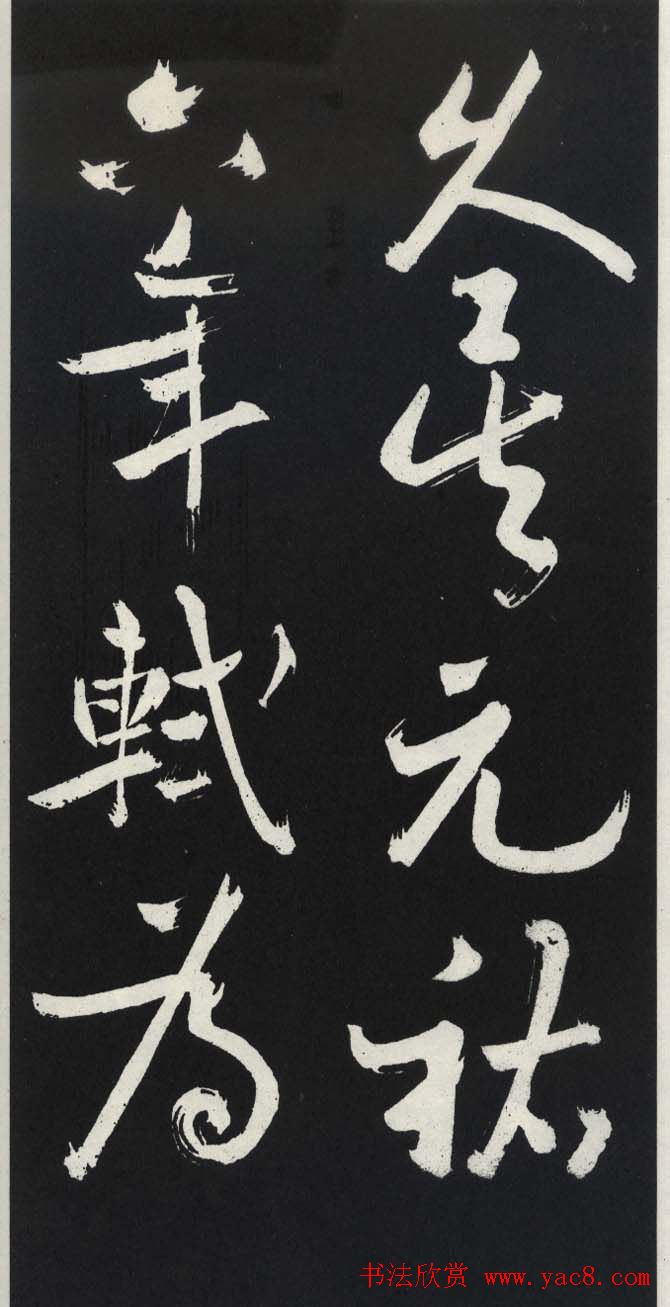 久矣元祐
六年軾為
书法欣赏 www.yac8.com